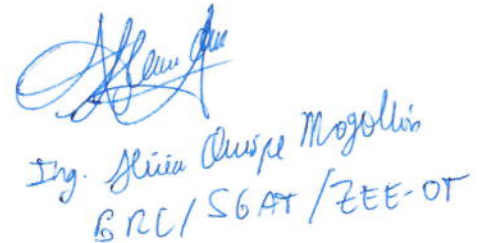 Ing. Quispe Mogollón
GRC/SGAT/ZEE-OT